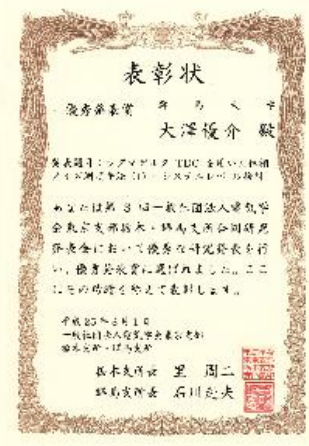 表彰状
優秀発表賞 群馬大学
大澤優介 殿
発表題目：シグマデルタ TDC を用いた位相
ノイズ測定手法 (1) - システムレベル検討
あなたは第 3 回一般社団法人電気学
会東京支部栃木・群馬支所合同研究
発表会において優秀な研究発表を行
い、優秀発表賞に選ばれました。ここ
にその功績を称えて表彰します。
平成25年3月1日
一般社団法人電気学会東京支部
栃木支所・群馬支所
栃木支所長 里 周二
群馬支所長 石川赴夫